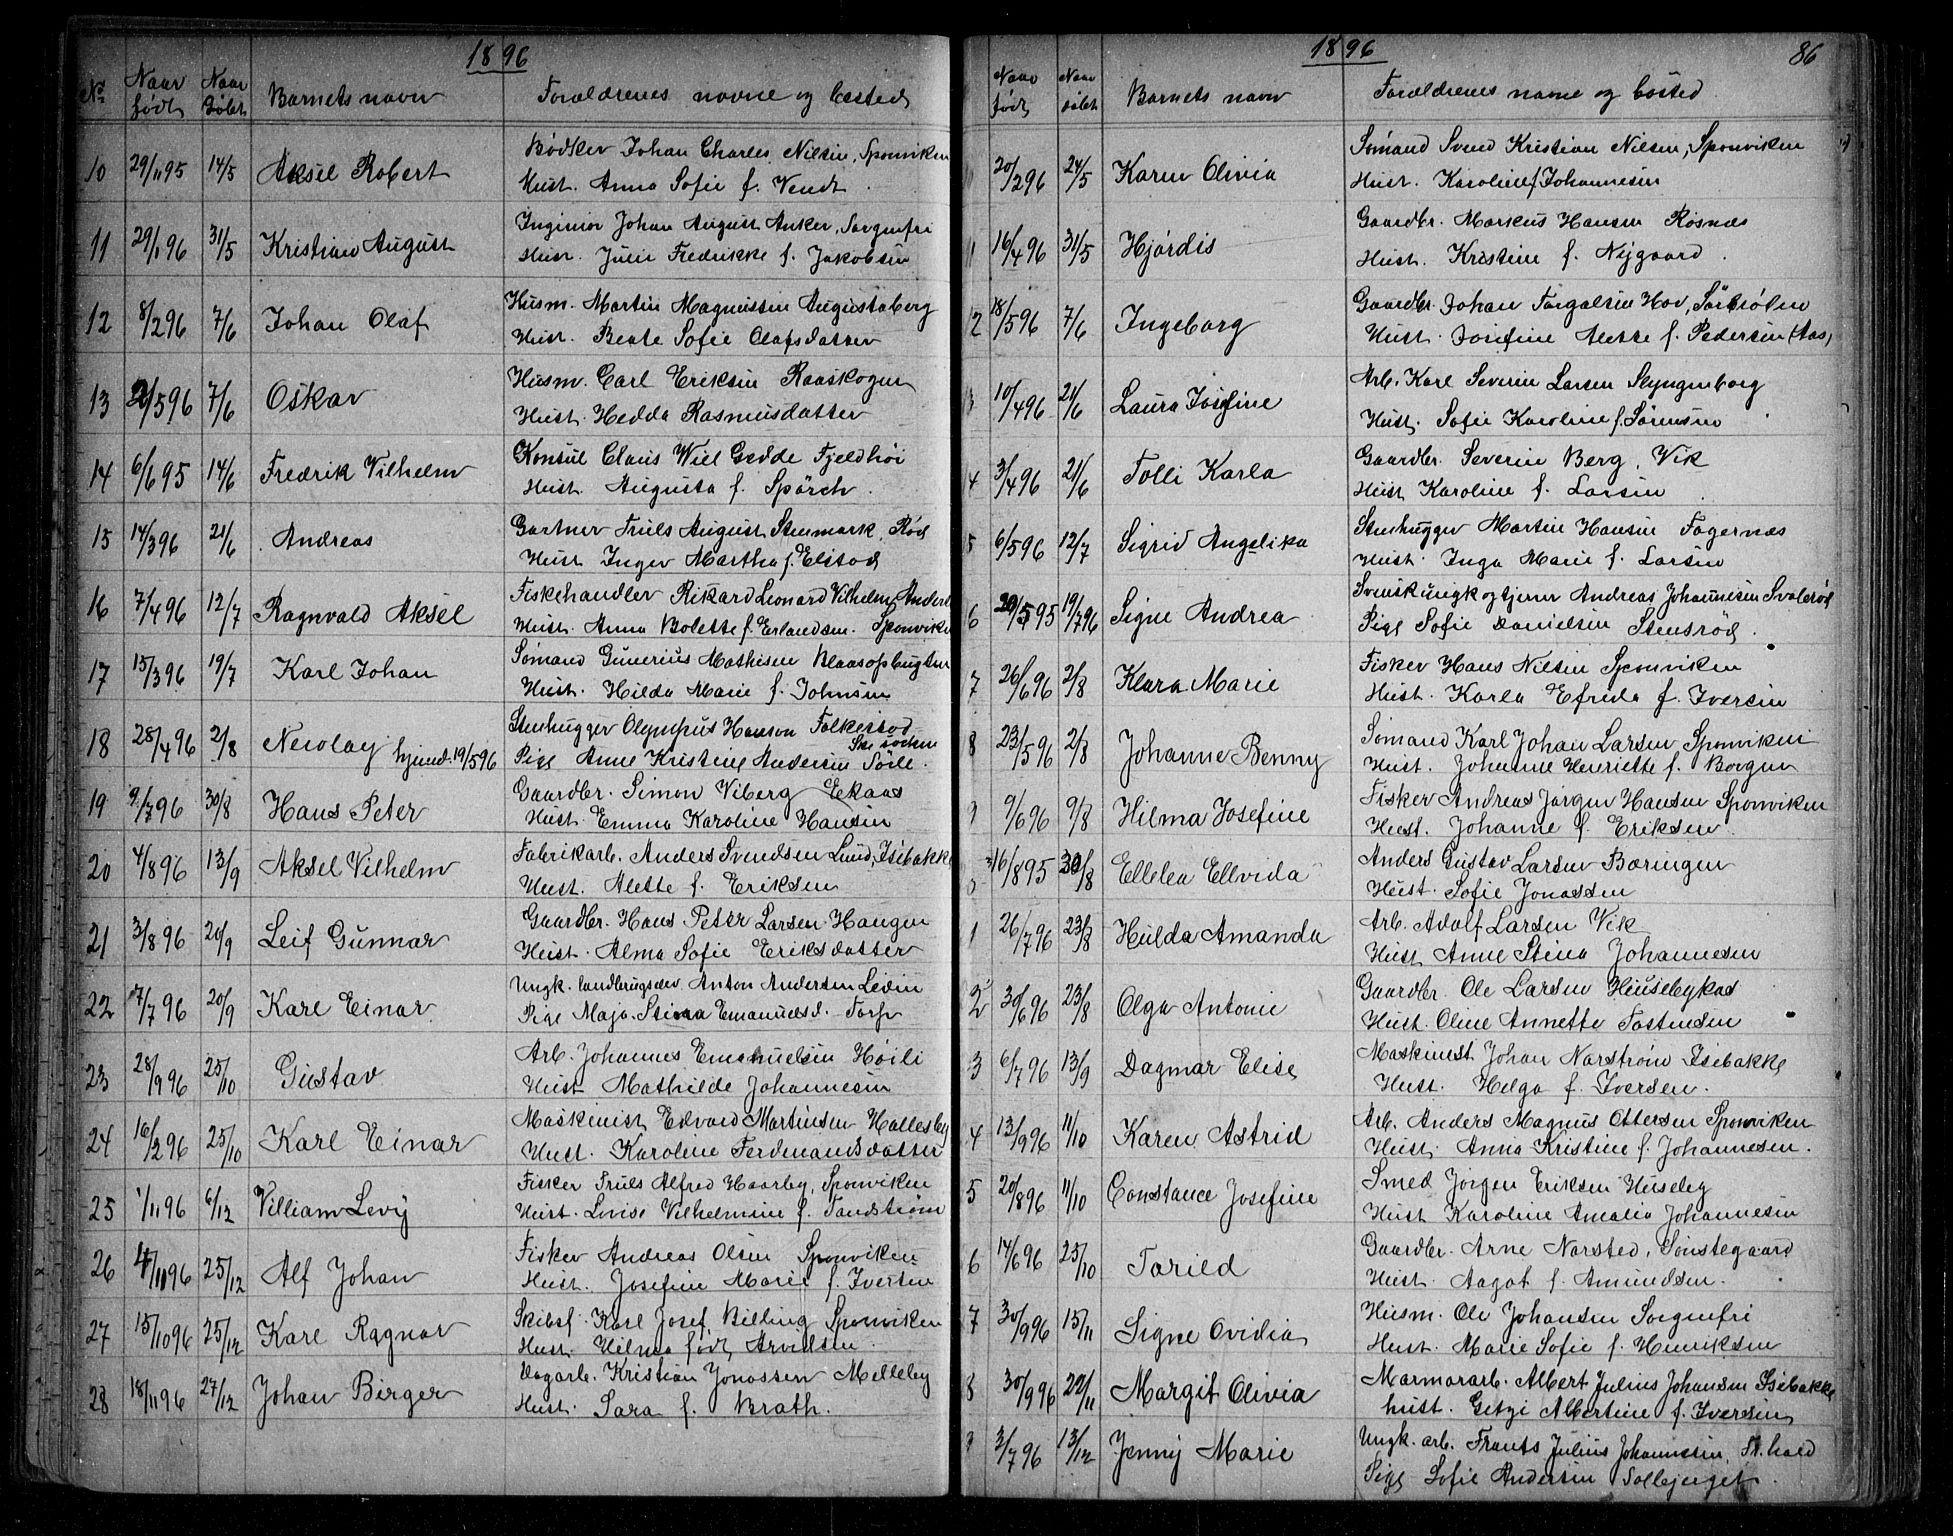 1896
No Naar født Naar døbt Barnets navn Forældrenes navne og bosted
10 29/11 95 14/5 Aksel Robert Bødker Johan Charles Nilsen, Sponviken
Hust. Anna Sofie f. Wendt.
11 29/1 96 31/5 Kristian August Ingeniør Johan August Anker, Sorgenfri
Hust. Julie Fredrikke f. Jakobsen
12 8/2 96 7/6 Johan Olaf Husm. Martin Magnussen Augustaberg
Hust. Beate Sofie Olafsdatter
13 2/5 96 7/6 Oskar Husm. Carl Eriksen Raaskogen
Hust. Hedda Rasmusdatter
14 6/6 95 14/6 Fredrik Vilhelm Konsul Claus Wiel Gedde Fjeldhøi
Hust. Augusta f. Spörch.
15 14/3 96 21/6 Andreas Gartner Truls August Stenmark, Rød
Hust Inger Martha f. Elstad
16 7/4 96 12/7 Ragnvald Aksel Fiskehandler Rikard Leonard Vilhelm
Hust. Anna Bolette f. Erlandsen. Sponviken
17 15/3 96 19/7 Karl Johan Sømand Gunerius Mathisen Blaasopbugten
Hust. Hilda Marie f. Johnsen
18 28/4 96 2/8 Nicolay hjemd. 19/5 96 Stenhugger Olympus Hanson Folkestad
Pige Anne Kristine Andersen Sørli.
19 9/7 96 30/8 Hans Peter Gaardbr. Simon Viberg Ekaas
Hust. Emma Karoline Hansen
20 4/8 96 13/9 Aksel Vilhelm Fabrikarb. Anders Svendsen Lund, Isebakke
Hust. Alette f. Eriksen
21 3/8 96 20/9 Leif Gunnar Gaardbr. Hans Peter Larsen Haugen
Hust. Alma Sofie Eriksdatter
22 7/7 96 20/9 Karl Einar Ungk. landbrugselev Anton Andersen Leiein
Pige Maja Stina Emanuelsd. Torp
23 28/9 96 25/10 Gustav Arb. Johannes Emanuelsen Høili
Hust Mathilde Johannesen
24 16/2 96 25/10 Karl Einar Maskinist Edvard Martinsen Hallesby
Hust. Karoline Ferdinandsdatter
25 1/11 96 6/12 Villiam Levy Fisker Truls Alfred Haarby, Sponviken
Hust. Lovise Vilhelmine f. Sandstrøm
26 4/11 96 25/12 Alf Johan Fisker Andreas Olsen Sponviken
Hust. Josefine Marie f. Iversen
27 15/10 96 25/12 Karl Ragnar Skibsf. Karl Josef Billing Sponviken
Hust. Hilma født Arvidsen.
28 18/11 96 27/12 Johan Birger Dagarb. Kristian Jonassen Melleby
Hust. Sara f. Brath.
1896 86
Naar født Naar døbt Barnets navn Forældrenes navne og bosted
20/2 96 24/5 Karen Olivia Sømand Svend Kristian Nilsen, Sponviken
Hust. Karoline f. Johannesen
1 16/4 96 31/5 Hjørdis Gaardbr. Markus Hansen Røsnæs
Hust. Kristine f. Nygaard.
2 18/5 96 7/6 Ingeborg Gaardbr. Johan Torgalsen Hov, Sørbrøden
Hust. Josefine Alette f. Pedersen (Aas)
3 10/4 96 21/6 Laura Josefine Arb. Karl Severin Larsen Slyngenborg
Hust. Sofie Karoline f. Sørensen
4 3/4 96 21/6 Tolli Karla Gaardbr. Severin Berg, Vik
Hust Karoline f. Larsen
5 6/5 96 12/7 Sigrid Angelika Stenhugger Martin Hansen Fagernæs
Hust. Inga Marie f. Larsen
6 29/5 95 19/7 96 Signe Andrea Svensk ungk. og tjener Andreas Johannesen Svalerød
Pige Sofie Danielsen Stensrød.
7 26/6 96 2/8 Klara Marie Fisker Hans Nilsen Sponviken
Hust. Karla Efrida f. Iversen
8 23/5 96 2/8 Johanne Benny Sømand Karl Johan Larsen Sponviken
Hust. Johanne Henriette f. Borgen
9 9/6 96 9/8 Hilma Josefine Fisker Andreas Jørgen Hansen Sponviken
Hust. Johanne f. Eriksen.
16/8 95 30/8 Ellelea Ellvida Anders Gustav Larsen Bæringen
Hust. Sofie Jonassen
1 26/7 96 23/8 Hulda Amanda Arb. Adolf Larsen Vik
Hust Anne Stina Johannesen
2 30/6 96 23/8 Olga Antonie Gaardbr. Ole Larsen Husebykas
Hust. Oline Annette Tostensen
3 6/7 96 13/9 Dagmar Elise Maskinist Johan Narstrøm Isebakke
Hust. Helga f. Iversen.
4 13/9 96 11/10 Karen Astrid Arb. Anders Magnus Ottersen Sponviken
Hust. Anna Kristine f. Johannesen.
5 20/8 96 11/10 Constance Josefine Smed Jørgen Eriksen Huseby
Hust Karoline Amalia Johannesen
6 14/6 96 25/10 Torild Gaardbr. Arne Narsted, Sønstegaard
Hust. Aagot f. Amundsen.
7 30/9 96 15/11 Signe Ovidia Husm. Ole Johansen Sorgenfri
Hust. Marie Sofie f. Henriksen
8 30/9 96 22/11 Margit Olivia Marmorarb. Albert Julius Johansen Isebakke
hust. Getzi Albertine f. Iversen
9 3/7 96 13/12 Jenny Marie Ungk. arb. Frants Julius Johannesen, Fr.hald
Pige Sofie Andersen Sollejerget.